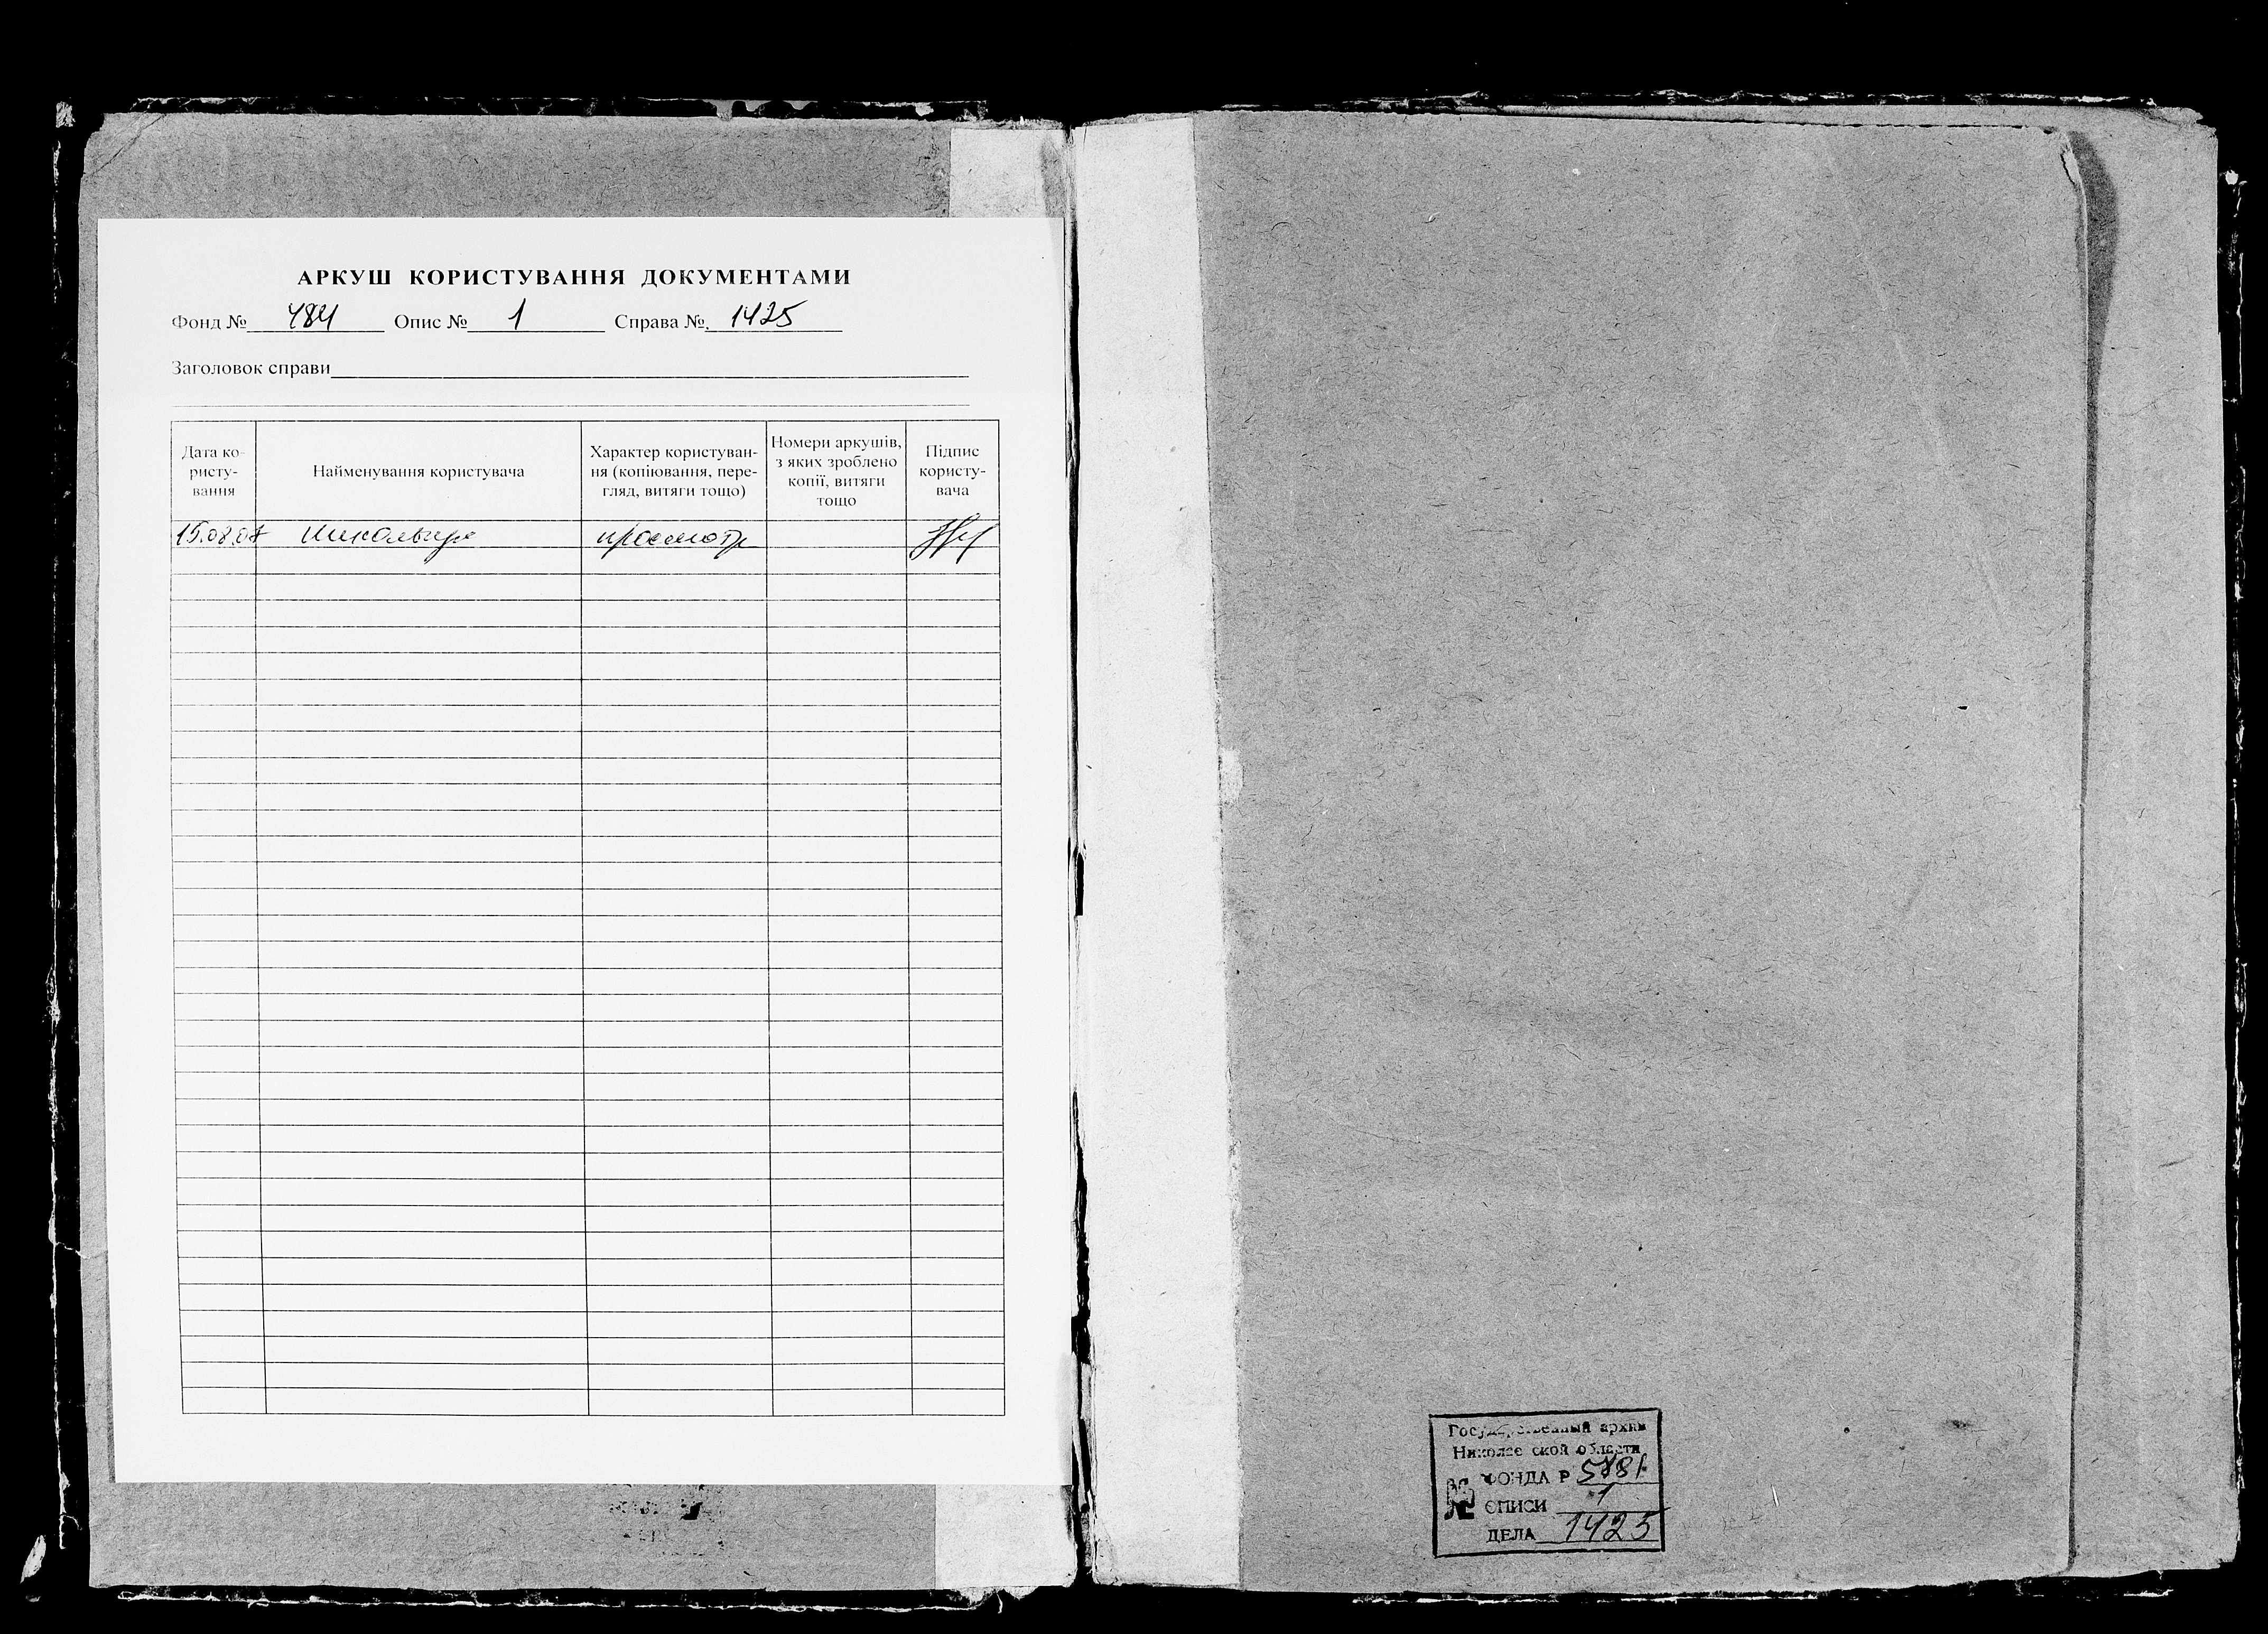 АРКУШ КОРИСТУВАННЯ ДОКУМЕНТАМИ
Фонд № 484 Опис № 1 Справа № 1425
Заголовок справи
Дата ко-
ристу-
вання
Найменування користувача
Характер користуван-
ня (копіювання, пере-
гляд, витяги тощо)
Номери аркушів,
з яких зроблено
копії, витяги
тощо
Підпис
користу-
вача
15.08.07 просмотр
Государственный архив
Николаевской области
№ ФОНДА Р 5881
ОПИСИ 1
ДЕЛА 1425